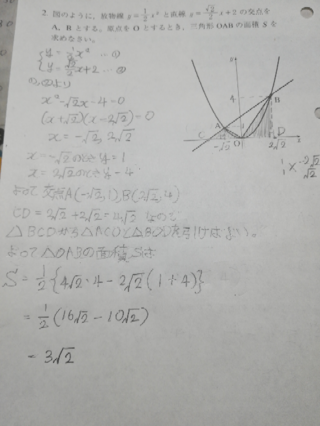 2. 図のように、放物線 y = 1/2 x² と直線 y = √2/2 x + 2 の交点を
A, B とする。原点を O とするとき、三角形 OAB の面積 S を
求めなさい。
y = 1/2 x² …①
y = √2/2 x + 2 …②
①, ②より
x² - √2x - 4 = 0
(x + √2)(x - 2√2) = 0
x = -√2, 2√2
x = -√2 のとき y = 1
x = 2√2 のとき y = 4
よって交点 A(-√2, 1), B(2√2, 4)
CD = 2√2 + 2√2 = 4√2 なので
△BCD から △ACO と △BOD を引けばよい。
よって △OAB の面積 S は
S = 1/2 {4√2・4 - 2√2(1 + 4)}
= 1/2 (16√2 - 10√2)
= 3√2
2
4
B
A
C
-√2
O
2√2
D